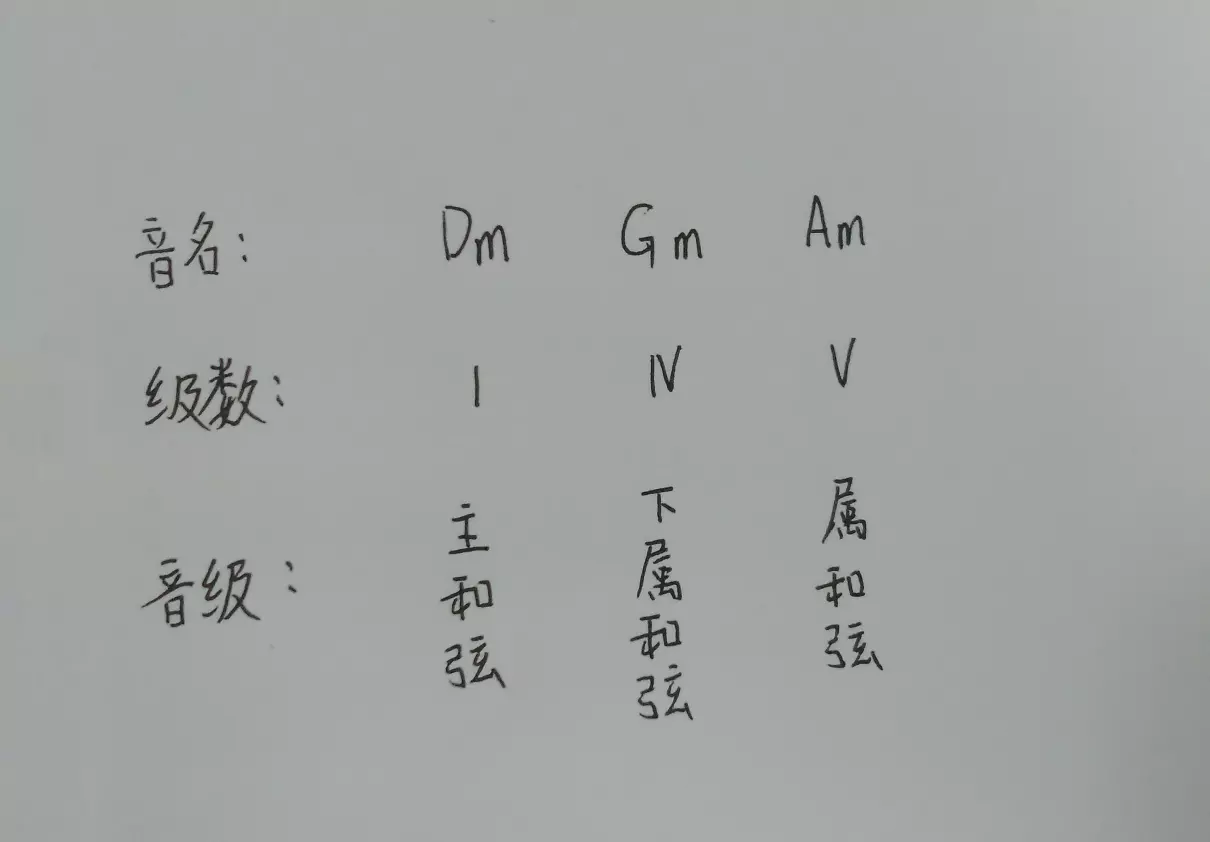 音名： Dm Gm Am
级数： I IV V
音级： 主和弦 下属和弦 属和弦